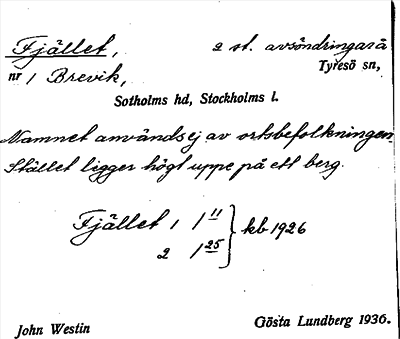 Fjället, 2 st. avsöndringar å
nr 1 Brevik, Tyresö sn,
Sotholms hd, Stockholms l.
Namnet användes ej av ortsbefolkningen.
Stället ligger högt uppe på ett berg.
Fjället 1 1 11
2 1 25 } kb 1926
John Westin Gösta Lundberg 1936.